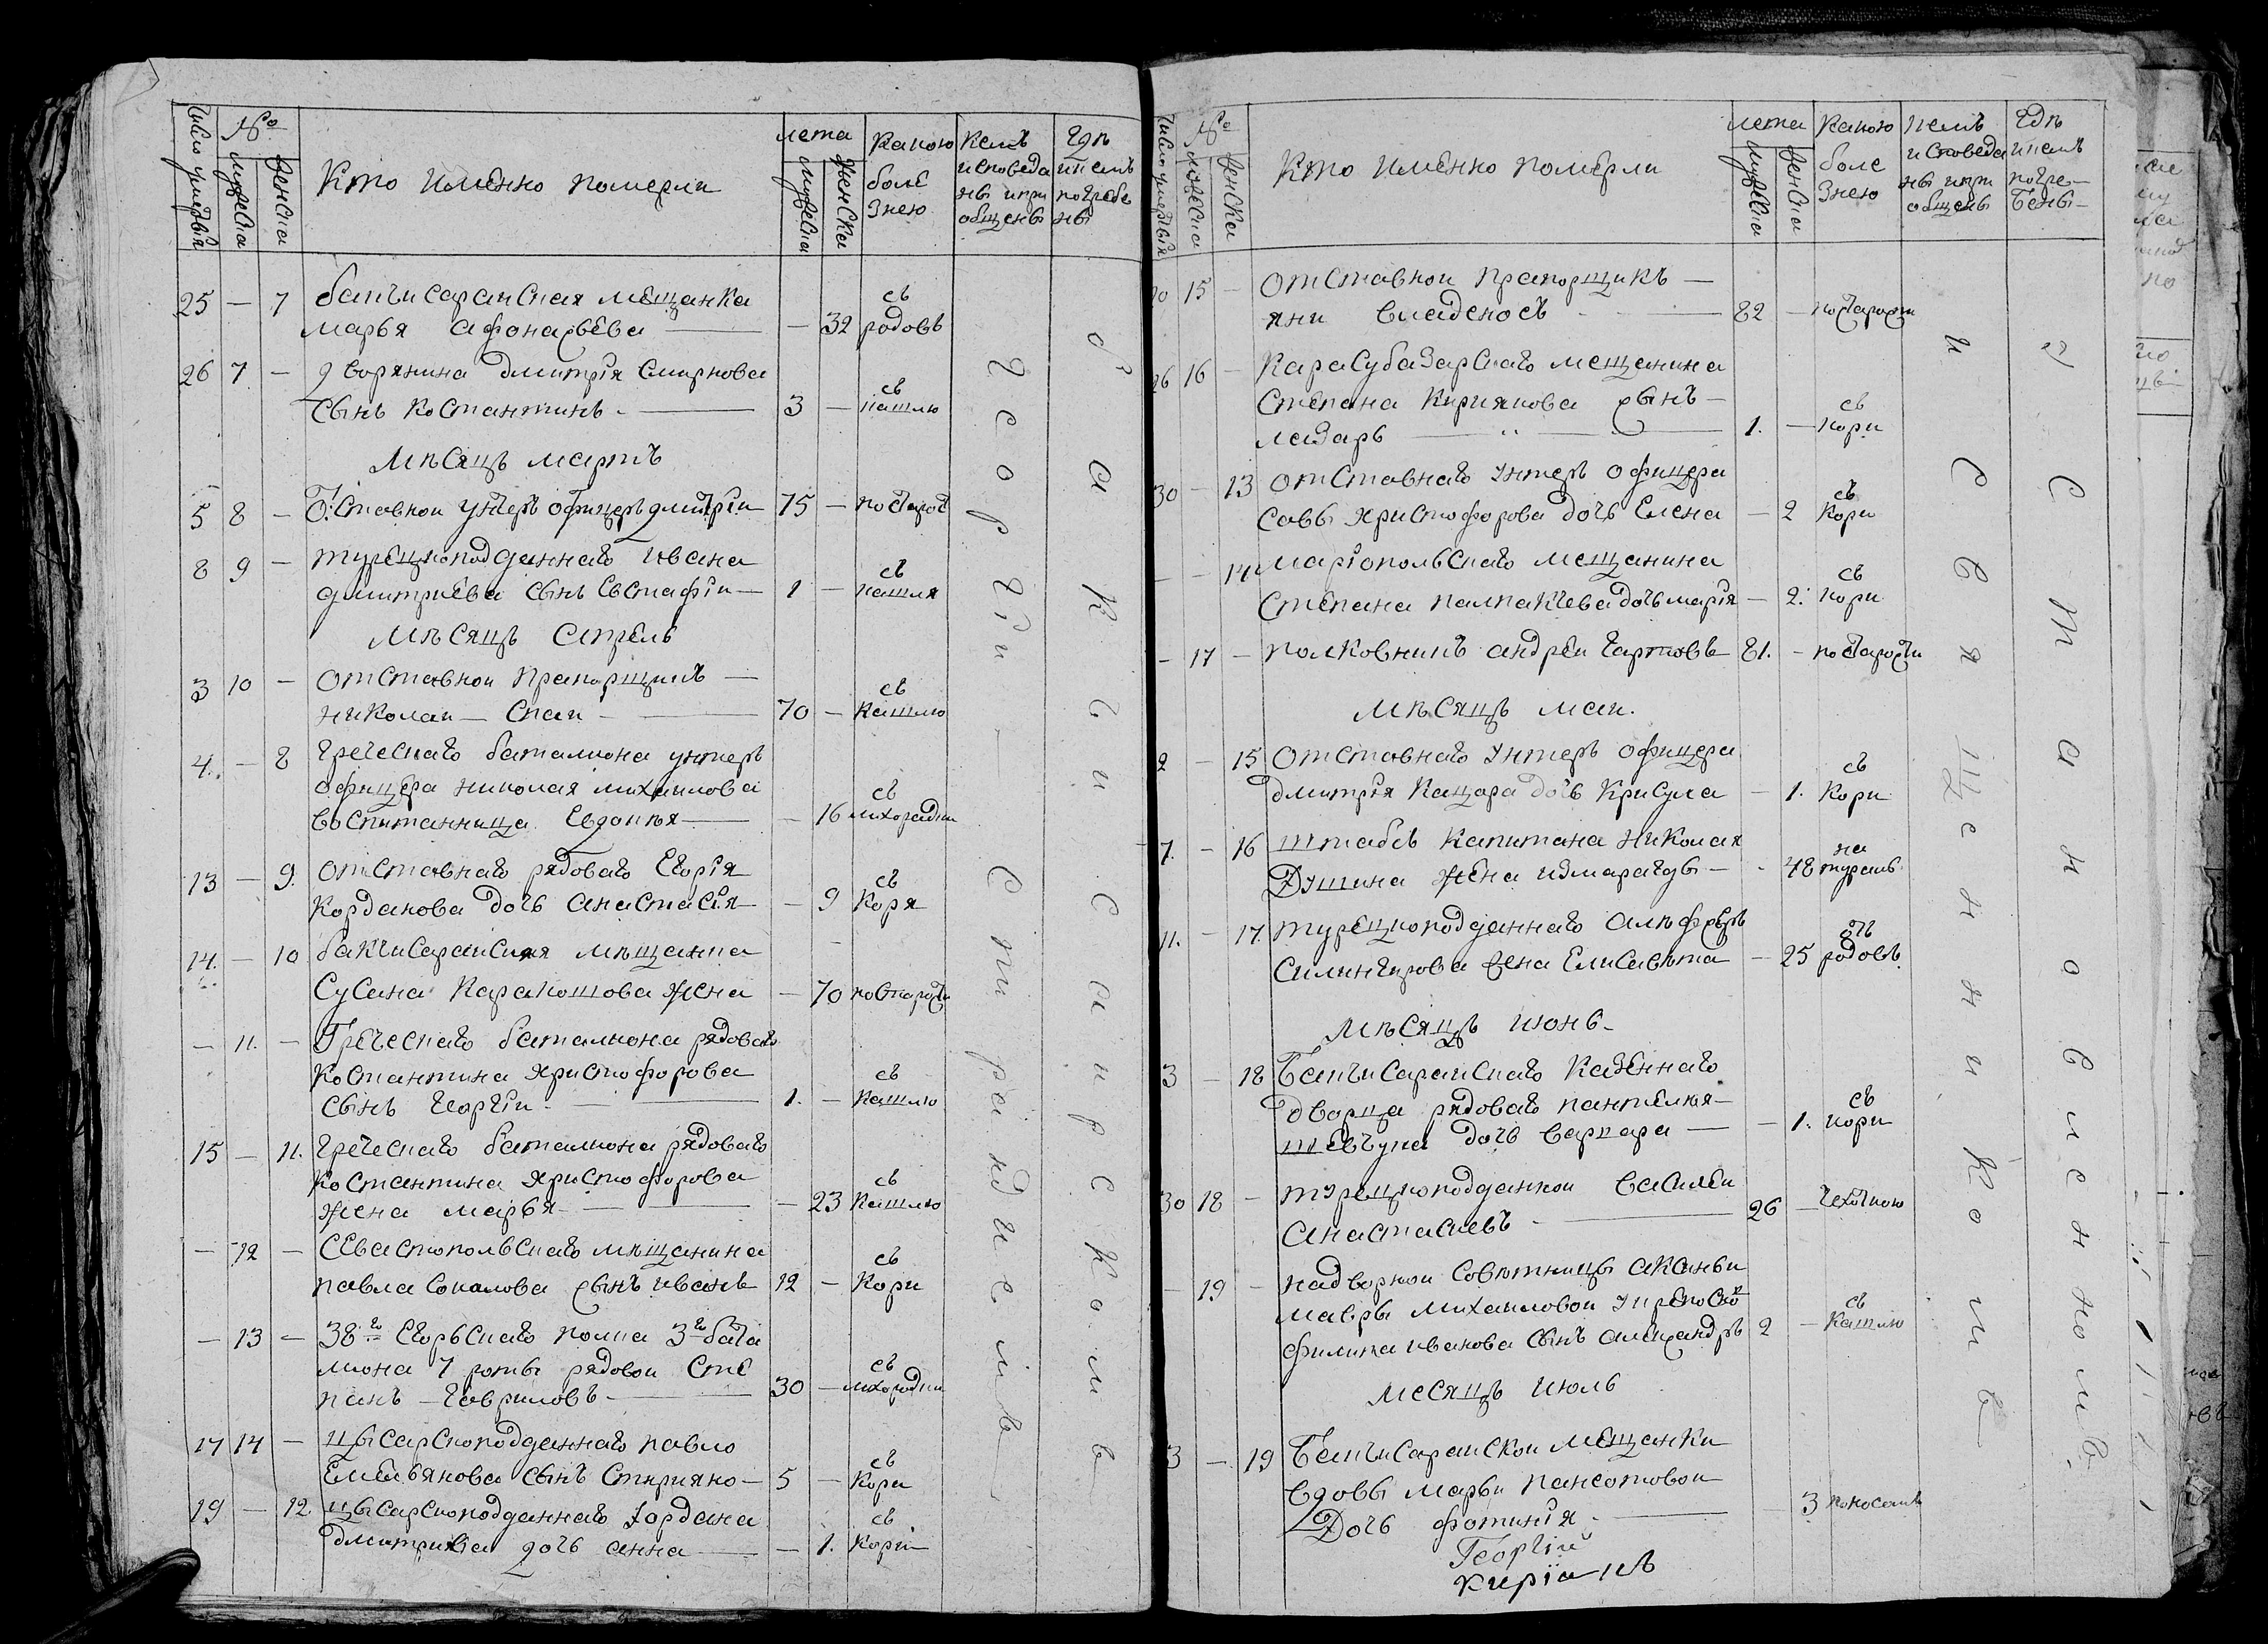 Число умершыя
№
мужеска
женска
Кто именно померли
лета
мужеска
женска
Какою болезнею
Кемъ исповеданы и приобщены
Где и кемъ погребены
25 — 7 бакчисарайская мещанка
марья афонасьева — 32 съ родовъ
26 7 — дворянина дмитрія Смирнова
сынъ костантинъ — 3 — съ кашлю
Мѣсяцъ мартъ
5 8 — Отставной унтеръ офицеръ дмитрій 75 — по старос
8 9 — турецкоподданнаго ивана
дмитриева сынъ Евстафій — 1 — съ кашля
Мѣсяцъ апрель
3 10 — отставной прапорщикъ —
николай — Спаи — 70 — съ кашлю
4. — 8 греческаго баталиона унтеръ
офицера николая михаилова
воспитанница Евдокія — 16 съ лихорадки
13 — 9. отставнаго рядоваго Егорія
Корданова дочь анастасія — 9 съ Коря
14. — 10 бакчисарайская мѣщанка
Сусана Каракошова жена — 70 по старости
— 11. — Греческаго баталиона рядоваго
костантина христофорова
сынъ Георгій — 1. — съ кашлю
15 — 11. греческаго баталиона рядоваго
костантина христофорова
жена марья — 23 съ кашлю
— 12 — Севастопольскаго мѣщанина
павла Соколова сынъ иванъ 12 — съ Кори
— 13 — 38го Егорьскаго полка 3го бата
лиона 7 роты рядовой Сте
панъ — Гавриловъ — 30 — съ лихорадки
17 14 — цысарскоподданнаго павло
Емельянова сынъ Стирияно — 5 — съ Кори
19 — 12 цысарскоподданнаго Іордана
дмитриева дочь анна — 1. съ Кори
Георгій Спирандіемъ
бакчисарскомъ
Число умершыя
№
мужеска
женска
Кто именно померли
лета
мужеска
женска
Какою болезнею
Кемъ исповеданы и приобщены
Где и кемъ погребены
15 — отставной прапорщикъ —
яни владеносъ — 82 — по старости
26 16 — карасубазарскаго мещанина
Степана Кирияковa сынъ —
лазарь — 1. — съ кори
30 — 13 отставнаго унтеръ офицера
Савы христофорова дочь Елена — 2 съ Кори
— — 14 маріопольскаго мещанина
Степана палпакчева дочь марія — 2. съ кори
— 17 — полковникъ андрей 81. — по старости
Мѣсяцъ май.
2 — 15 отставнаго унтеръ офицера
дмитрія Кацара дочь Крисула — 1. съ Кори
7. — 16 штабсъ Капитана николая
Душина жена измарагды — 48 натурадь
11. — 17. турецкоподданнаго
жена Елисавѣта — 25 отъ родовъ
Мѣсяцъ июнь
3 — 18 Бакчисарайскаго казеннаго
дворца рядоваго пантелея
шевчука дочь варвара — 1. съ кори
30 18 — турецкоподданной василей
анастасиевъ — 26 — чехоткою
— 19 — надворной совѣтницы аксиньи
мавры михаиловой у крепосной
филипа иванова сынъ александръ 2 — съ кашлю
месяцъ июль
3 — 19 Бакчисарайской мещанки
вдовы марьи пансотовой
Дочь фотинія — 3 поносомъ
Георгій
Киріаковъ
и Священникомъ
Становленномъ